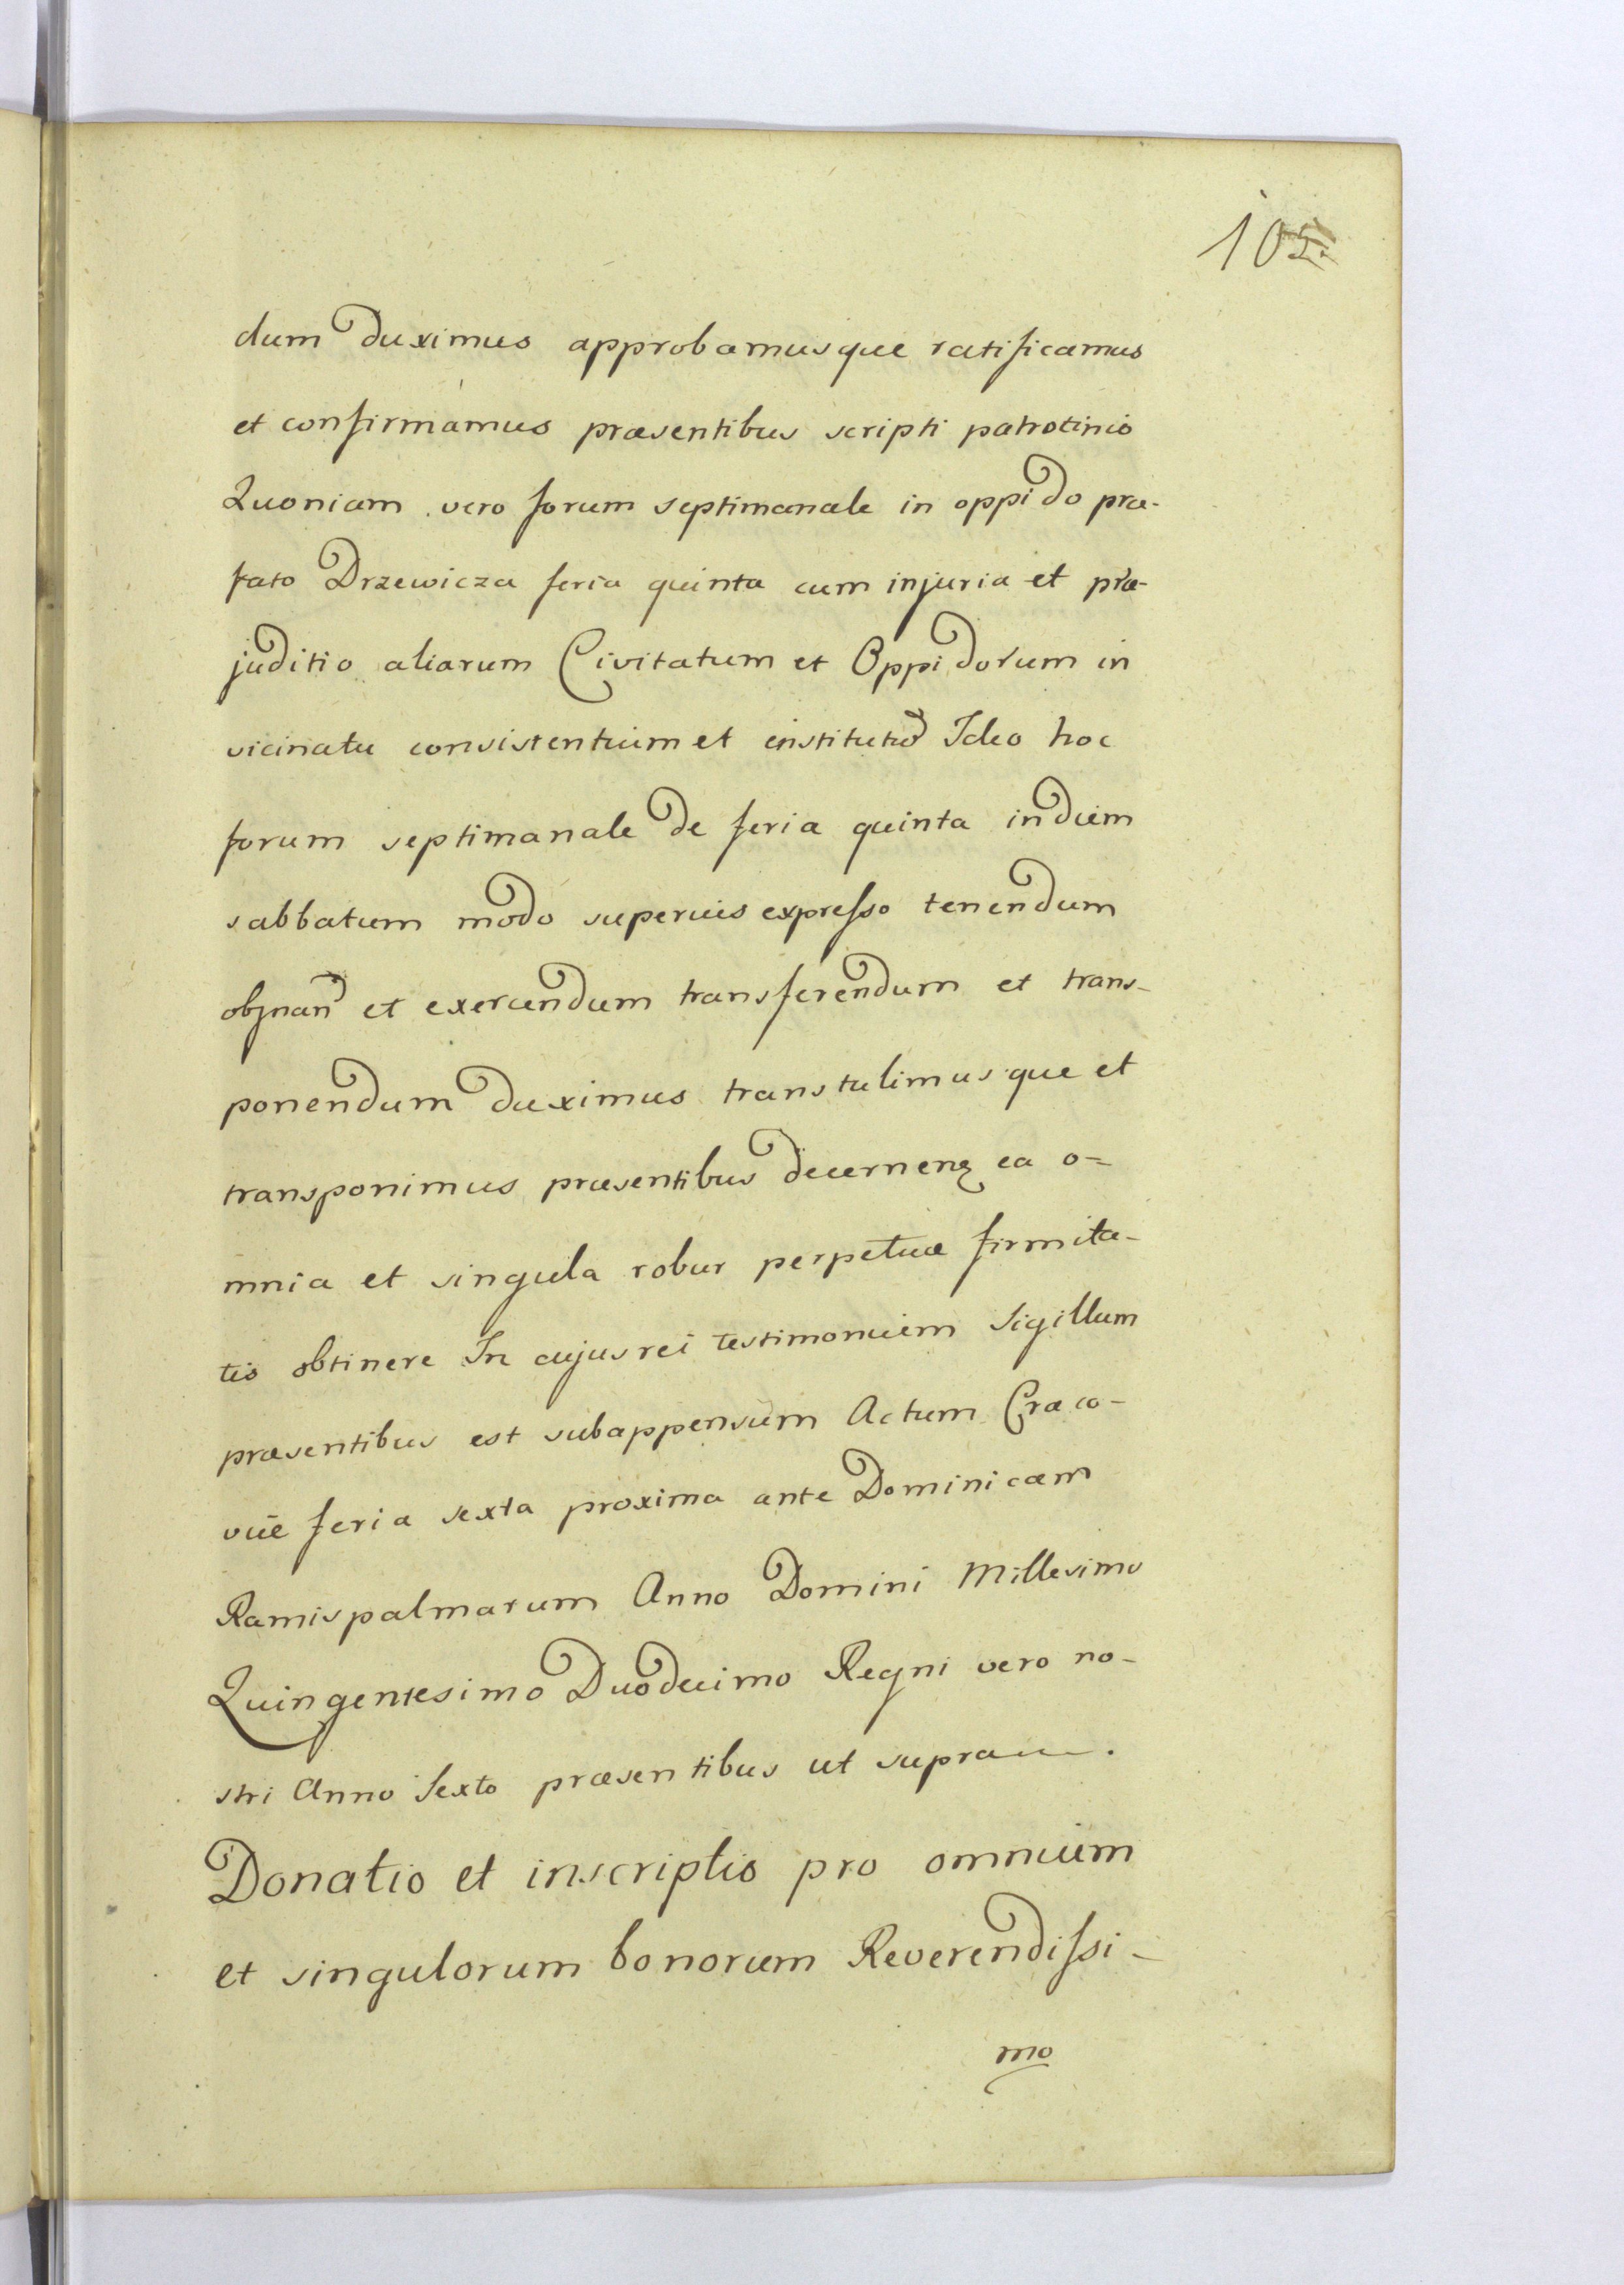 105.
dum duximus approbamusque ratificamus
et confirmamus præsentibus scripti patrotinio
Quoniam vero forum septimanale in oppido præ-
fato Drzewicza feria quinta cum injuria et præ-
juditio aliarum Civitatum et Oppidorum in
vicinatu consistentium et institutũ Ideo hoc
forum septimanale de feria quinta in diem
sabbatum modo superius expresso tenendum
et exercendum transferendum et trans-
ponendum duximus transtulimusque et
transponimus præsentibus decernenꝫ ea o=
mnia et singula robur perpetuæ firmita-
tis obtinere In cujus rei testimonium Sigillum
præsentibus est subappensum Actum Craco-
viẽ feria sexta proxima ante Dominicam
Ramispalmarum Anno Domini Millesimo
Quingentesimo Duodecimo Regni vero no-
stri Anno Sexto præsentibus ut supra.
Donatio et inscriptio pro omnium
et singulorum bonorum Reverendissi-
mo